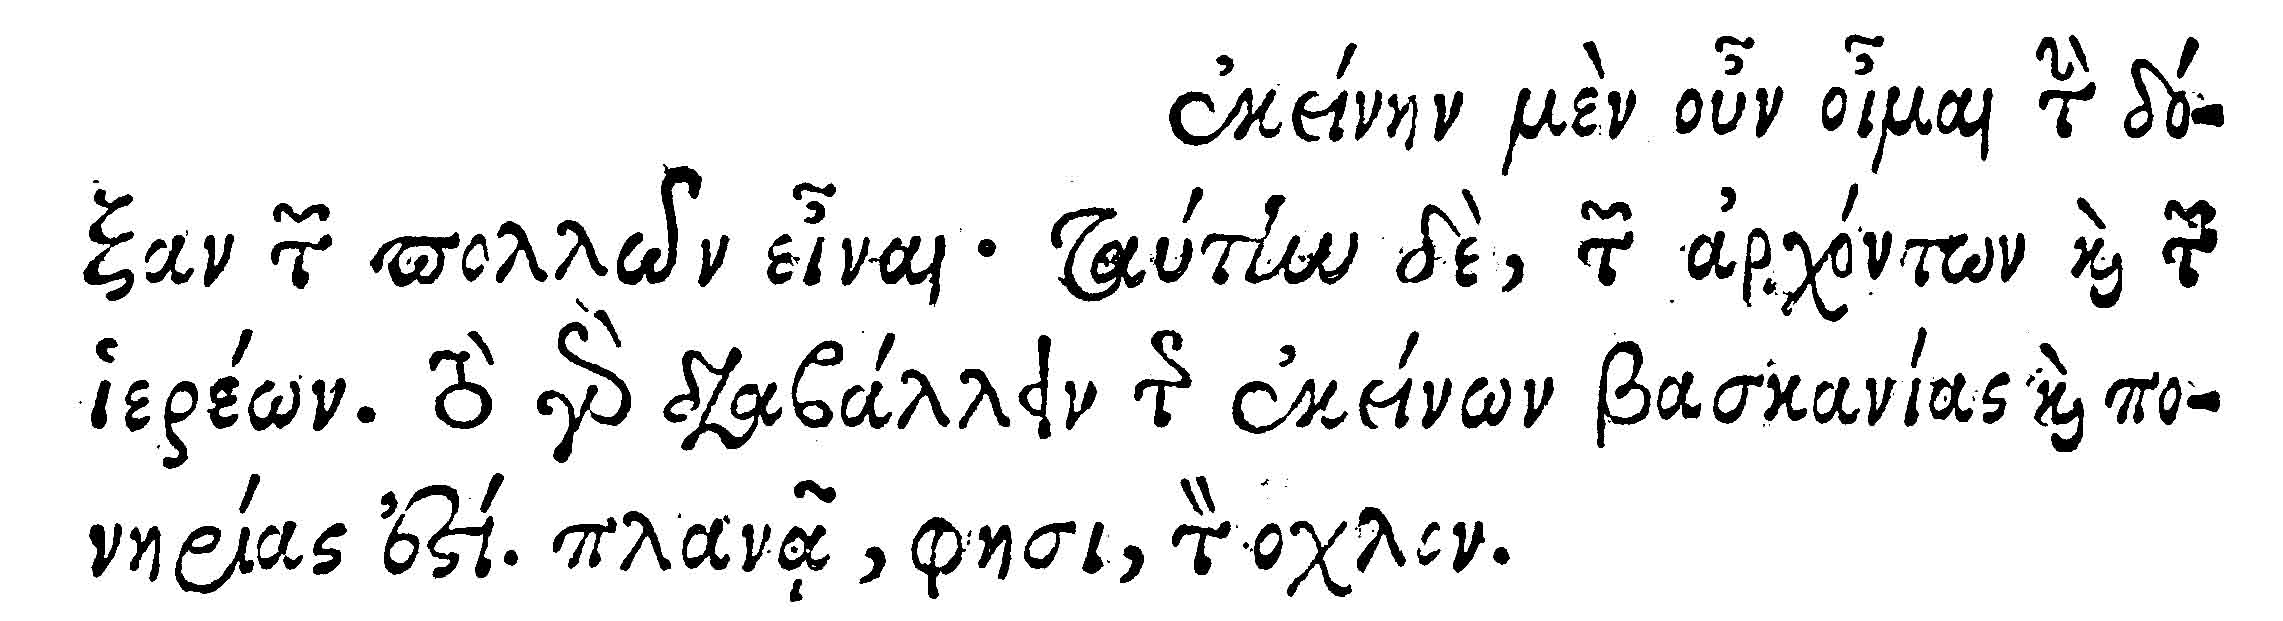 ἐκείνην μὲν οὖν οἶμαι τὴν δό-
ξαν τῶν πολλῶν εἶναι· ταύτην δὲ, τῶν ἀρχόντων καὶ τῶν
ἱερέων. τὸ γὰρ διαβάλλειν τῆς ἐκείνων βασκανίας καὶ πο-
νηρίας ἐστί. πλανᾷ, φησι, τὸν ὄχλον.